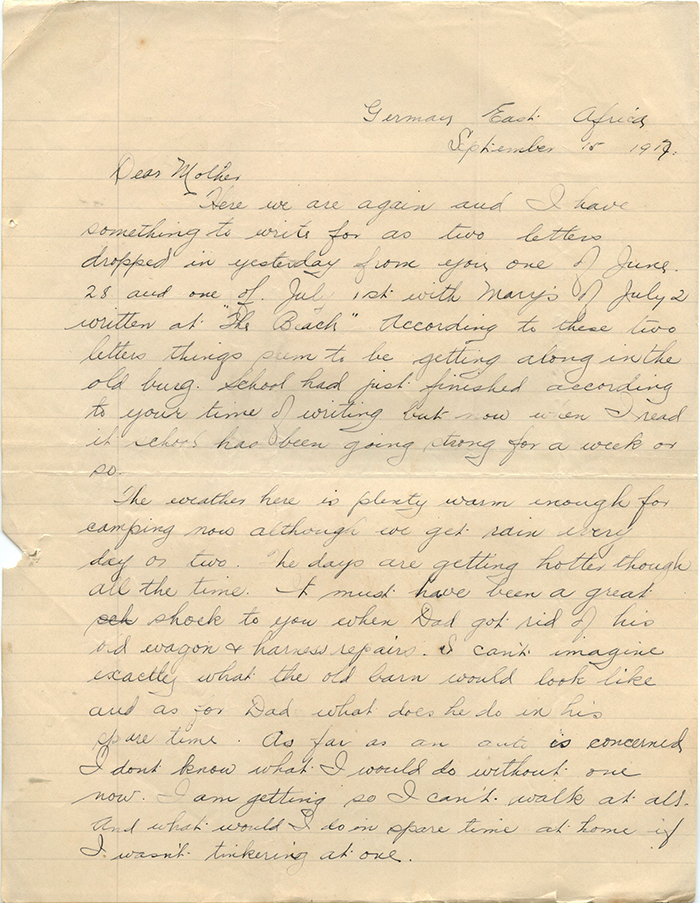 German East Africa
September 15 1917.
Dear Mother
Here we are again and I have
something to write for as two letters
dropped in yesterday from you one of June
28 and one of July 1st with Mary's of July 2
written at "The Beach" According to these two
letters things seem to be getting along in the
old burg. School had just finished according
to your time of writing but now when I read
it school has been going strong for a week or
so.
The weather here is plenty warm enough for
camping now although we get rain every
day or two. The days are getting hotter though
all the time. It must have been a great
sch shock to you when Dad got rid of his
old wagon & harness repairs. I can't imagine
exactly what the old barn would look like
and as for Dad what does he do in his
spare time. As far as an auto is concerned
I dont know what I would do without one
now. I am getting so I can't walk at all.
And what would I do in spare time at home if
I wasn't tinkering at one.